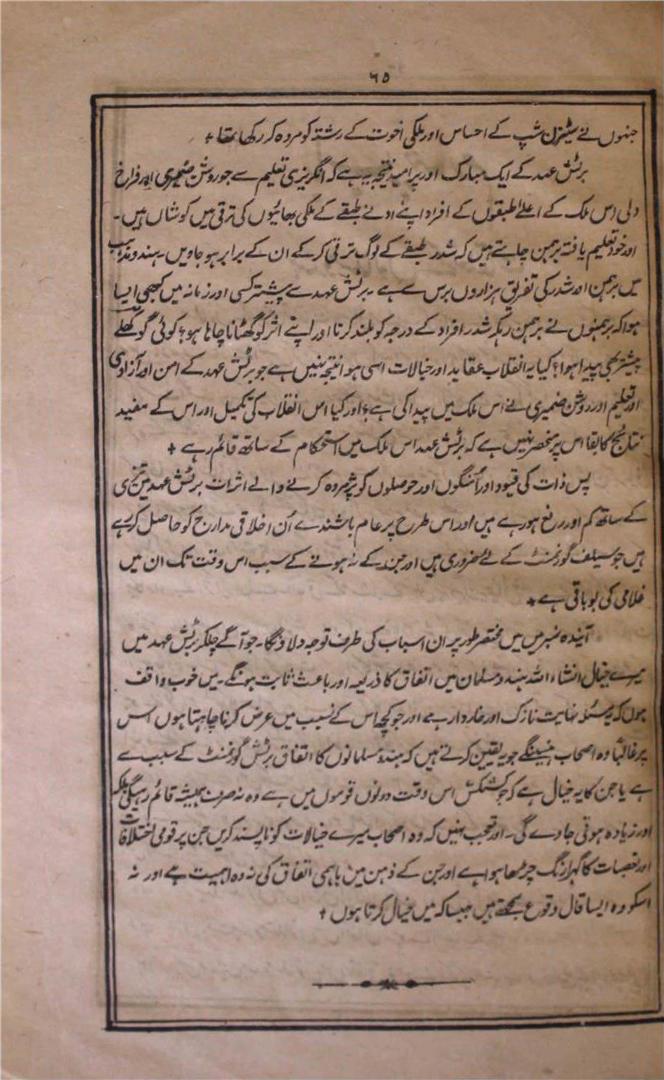 ۶۵
جنہوں نے سٹیزن شپ کے احساس اور ملکی اخوت کے رشتہ کو مردہ کر رکھا تھا +
برٹش عہد کے ایک مبارک اور پر امید نتیجہ یہ ہے کہ انگریزی تعلیم سے جو روشن ضمیری اور فراخ
دلی اس ملک کے اعلےٰ طبقوں کے افراد اپنے ادنے طبقے کے ملکی بھائیوں کی ترقی میں کوشاں ہیں۔
اور خود تعلیم یافتہ برہمن چاہتے ہیں کہ شدر طبقے کے لوگ ترقی کر کے ان کے برابر ہو جاویں۔ ہندو مذہب
میں برہمن اور شدر کی تفریق ہزاروں برس سے ہے۔ برٹش عہد سے پیشتر کسی اور زمانہ میں کبھی ایسا
ہوا کہ برہمنوں نے برہمن رہکر شدر افراد کے درجہ کو بلند کرنا اور اپنے اثر کو گھٹانا چاہا ہو؟ کوئی گوکھلے
پیشتر بھی پیدا ہوا؟ کیا یہ انقلاب عقاید اور خیالات اسی ہوا نتیجہ نہیں ہے جو برٹش عہد کے امن اور آزادی
اور تعلیم اور روشن ضمیری نے اس ملک میں پیدا کی ہے؟ اور کیا اس انقلاب کی تکمیل اور اس کے مفید
نتائج کا بقا اس پر منحصر نہیں ہے کہ برٹش عہد اس ملک میں استحکام کے ساتھ قائم رہے +
پس ذات کی قیود اور اُمنگوں اور حوصلوں کو پژمردہ کرنے والے اثرات برٹش عہد میں تیزی
کے ساتھ کم اور رفع ہو رہے ہیں اور اس طرح پر عام باشندے اُن اخلاقی مدارج کو حاصل کر رہے
ہیں جو سیلف گورنمنٹ کے لئے ضروری ہیں اور جن کے نہ ہونے کے سبب اس وقت تک ان میں
غلامی کی بو باقی ہے +
آیندہ نمبر میں میں مختصر طور پر ان اسباب کی طرف توجہ دلاؤنگا۔ جو آگے چلکر برٹش عہد میں
میرے خیال انشاء اللہ ہندو مسلمان میں اتفاق کا ذریعہ اور باعث ثابت ہونگے۔ میں خوب واقف
ہوں کہ یہ مسئلہ نہایت نازک اور خاردار ہے اور جو کچھ اس کے نسبت میں عرض کرنا چاہتا ہوں اس
پر غالباً وہ اصحاب ہنسینگے جو یقین کرتے ہیں کہ ہندو مسلمانوں کا اتفاق برٹش گورنمنٹ کے سبب سے
ہے یا جن کا یہ خیال ہے کہ جو کشمکش اس وقت دونوں قوموں میں ہے وہ نہ صرف ہمیشہ قائم رہیگی بلکہ
اور زیادہ ہوتی جاوے گی۔ اور تعجب نہیں کہ وہ اصحاب میرے خیالات کو ناپسند کریں جن پر قومی اختلافات
اور تعصبات کا گہرا رنگ چڑھا ہوا ہے اور جن کے ذہن میں باہمی اتفاق کی نہ وہ اہمیت ہے اور نہ
اسکو وہ ایسا قابل وقوع سمجھتے ہیں جیسا کہ میں خیال کرتا ہوں +